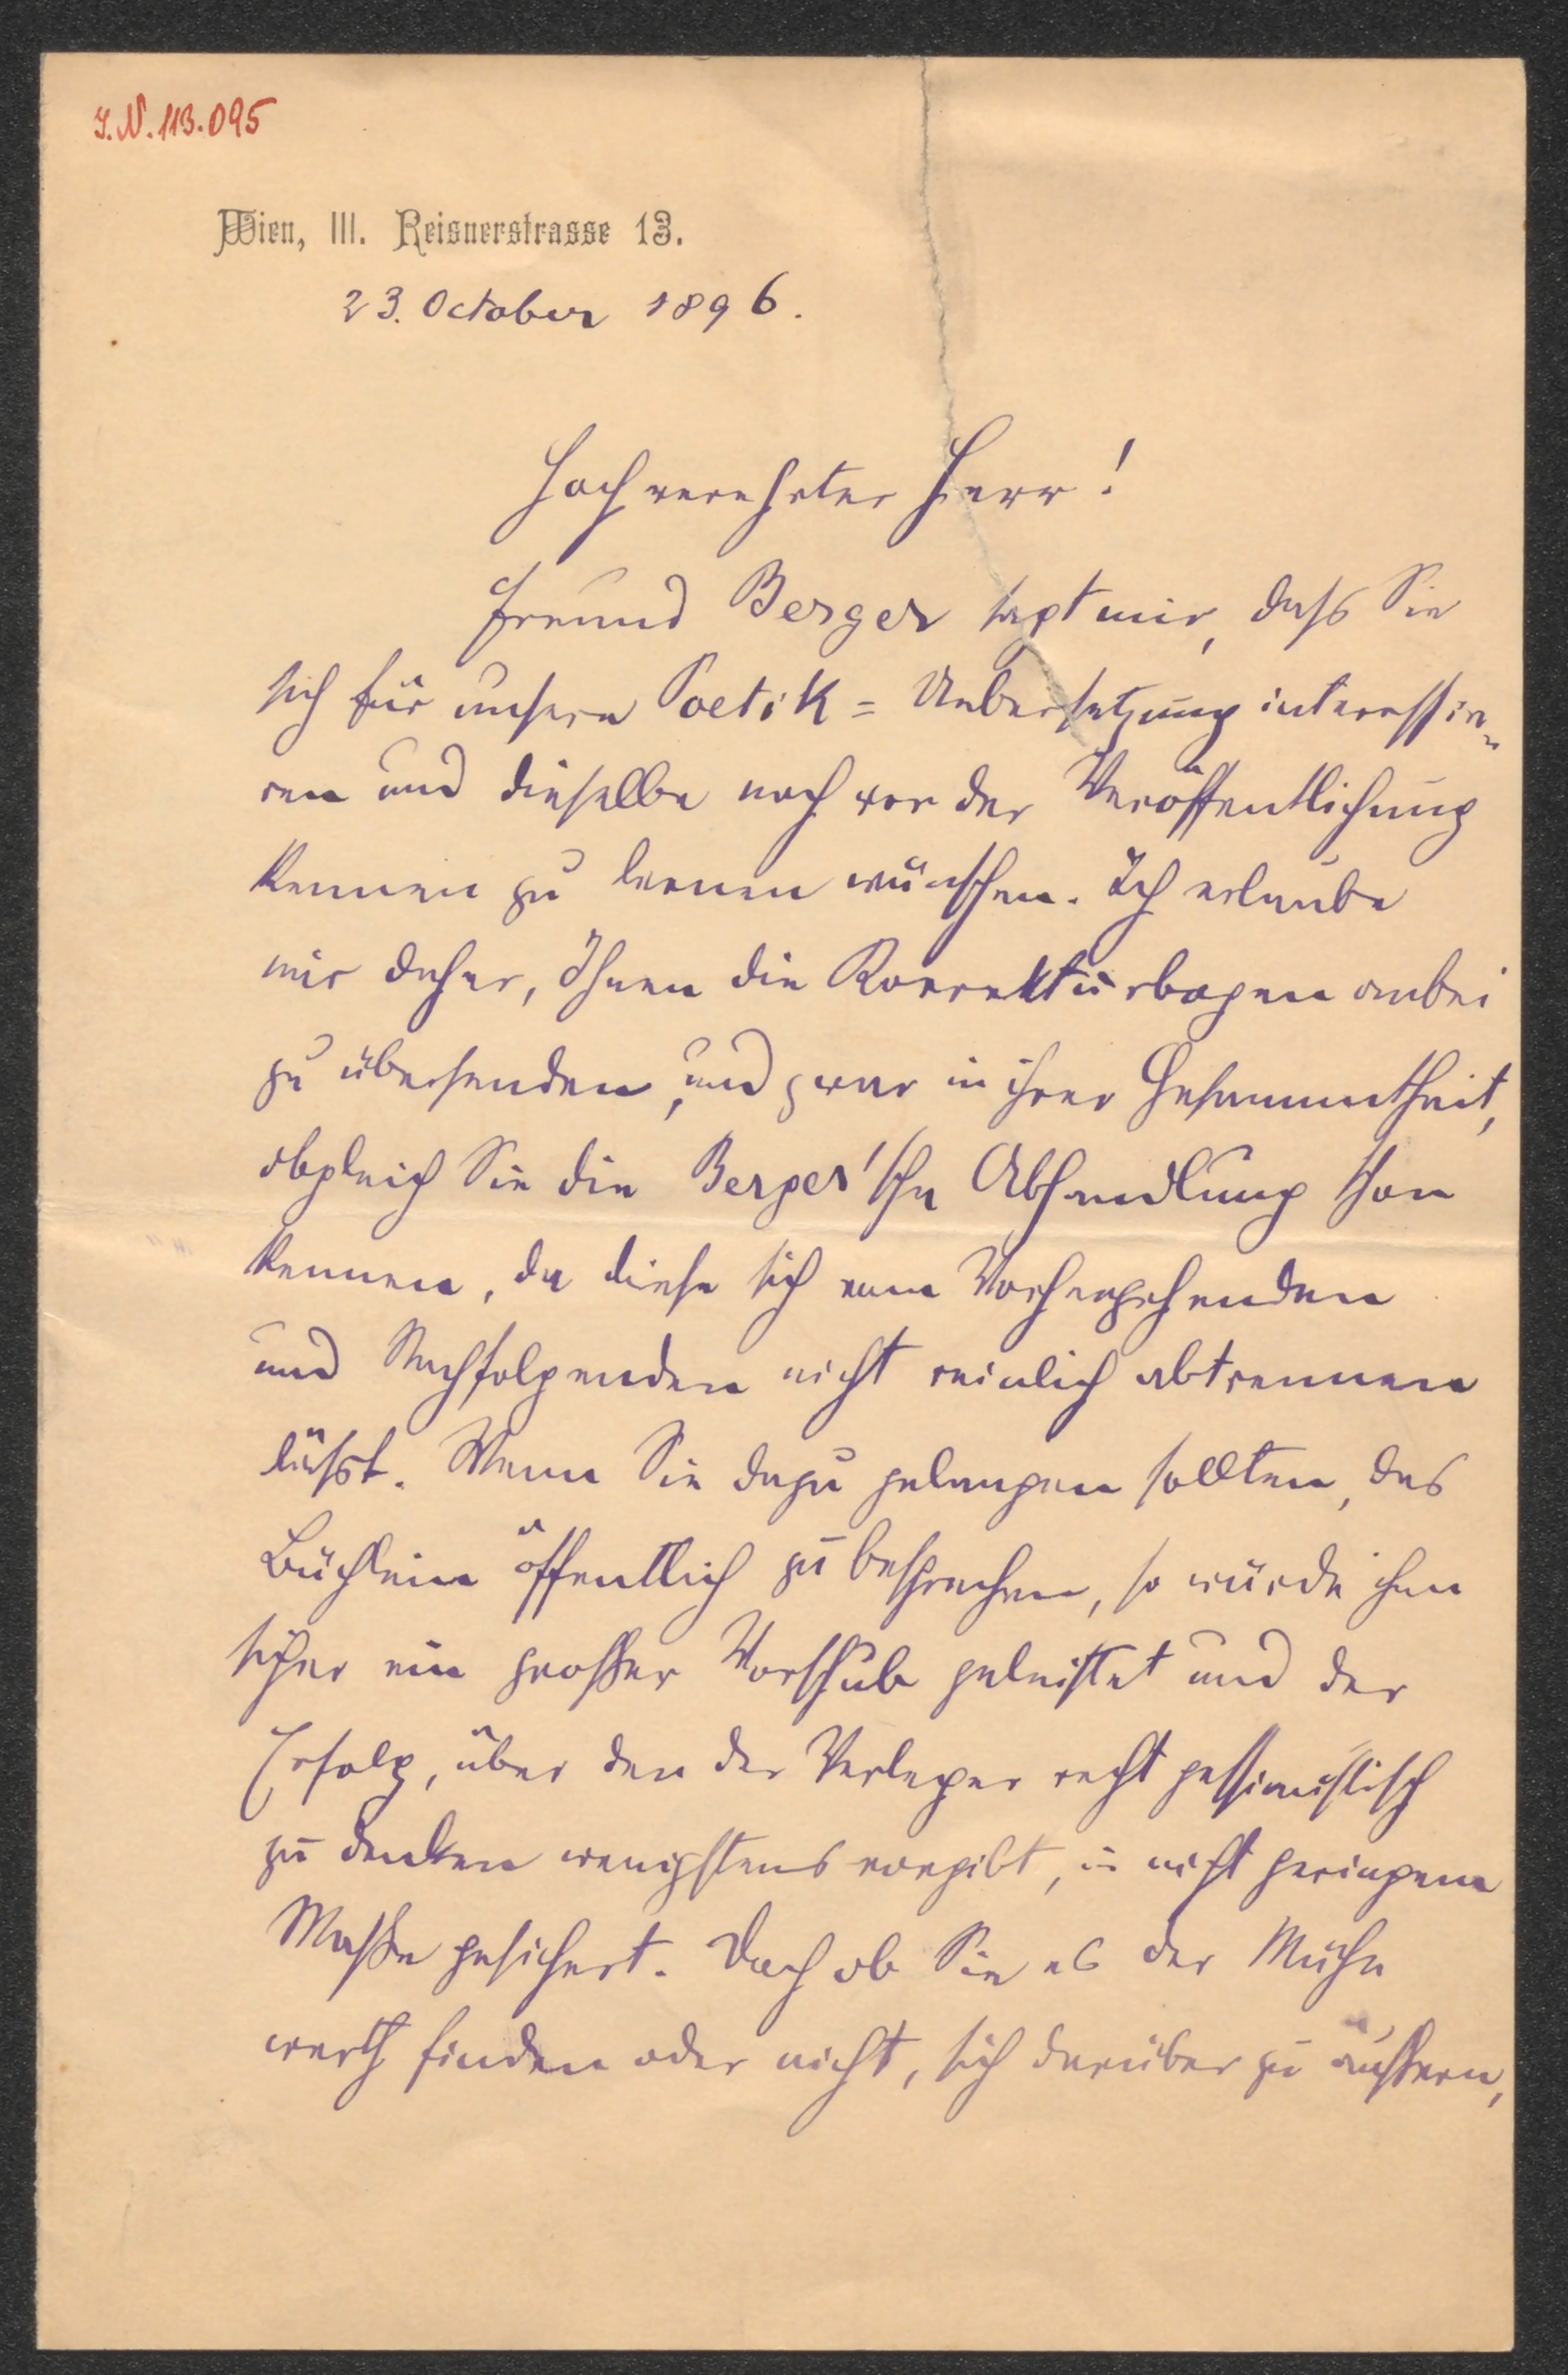 I.N. 113.095
Wien, III. Reisnerstrasse 13.
23. October 1896.
Hochverehrter Herr!
Freund Berger sagt mir, dass Sie
sich für unsere Poetik=Uebersetzung interessie=
ren und dieselbe noch vor der Veröffentlichung
kennen zu lernen wünschen. Ich erlaube
mir daher, Ihnen die Korrekturbogen anbei
zu übersenden, und zwar in ihrer Gesammtheit,
obgleich Sie die Berger'sche Abhandlung schon
kennen, da diese sich vom Vorhergehenden
und Nachfolgenden nicht reinlich abtrennen
lässt. Wenn Sie dazu gelangen sollten, das
Büchlein öffentlich zu besprechen, so würde ihm
sicher ein grosser Vorschub geleistet und der
Erfolg, über den der Verleger recht pessimistisch
zu denken wenigstens vorgibt, in nicht geringem
Masse gesichert. Doch ob Sie es der Mühe
werth finden oder nicht, sich darüber zu äussern,